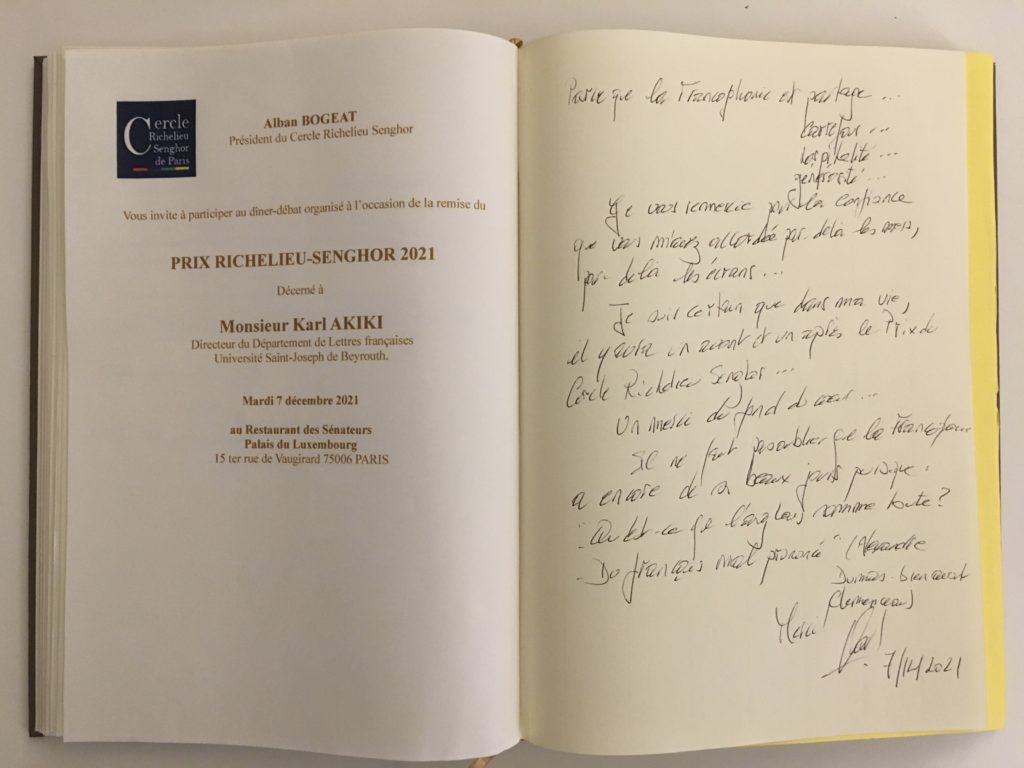 Cercle
Richelieu
Senghor
de Paris
Alban BOGEAT
Président du Cercle Richelieu Senghor
Vous invite à participer au dîner-débat organisé à l'occasion de la remise du
PRIX RICHELIEU-SENGHOR 2021
Décerné à
Monsieur Karl AKIKI
Directeur du Département de Lettres françaises
Université Saint-Joseph de Beyrouth.
Mardi 7 décembre 2021
au Restaurant des Sénateurs
Palais du Luxembourg
15 ter rue de Vaugirard 75006 PARIS
Parce que la Francophonie est partage ...
carrefour ...
hospitalité ...
générosité ...
Je vous remercie pour la confiance
que vous m'avez accordée par-delà les mers,
par-delà les écrans ...
Je suis certain que dans ma vie,
il y aura un avant et un après le Prix du
Cercle Richelieu Senghor ...
Un merci du fond du cœur ...
Il ne faut pas oublier que la
a encore de beaux jours puisque :
"Qu'est-ce que l'anglais somme toute ?
- Du français mal prononcé" (Alexandre
Dumas - bien avant
Clemenceau)
Merci
7/12/2021